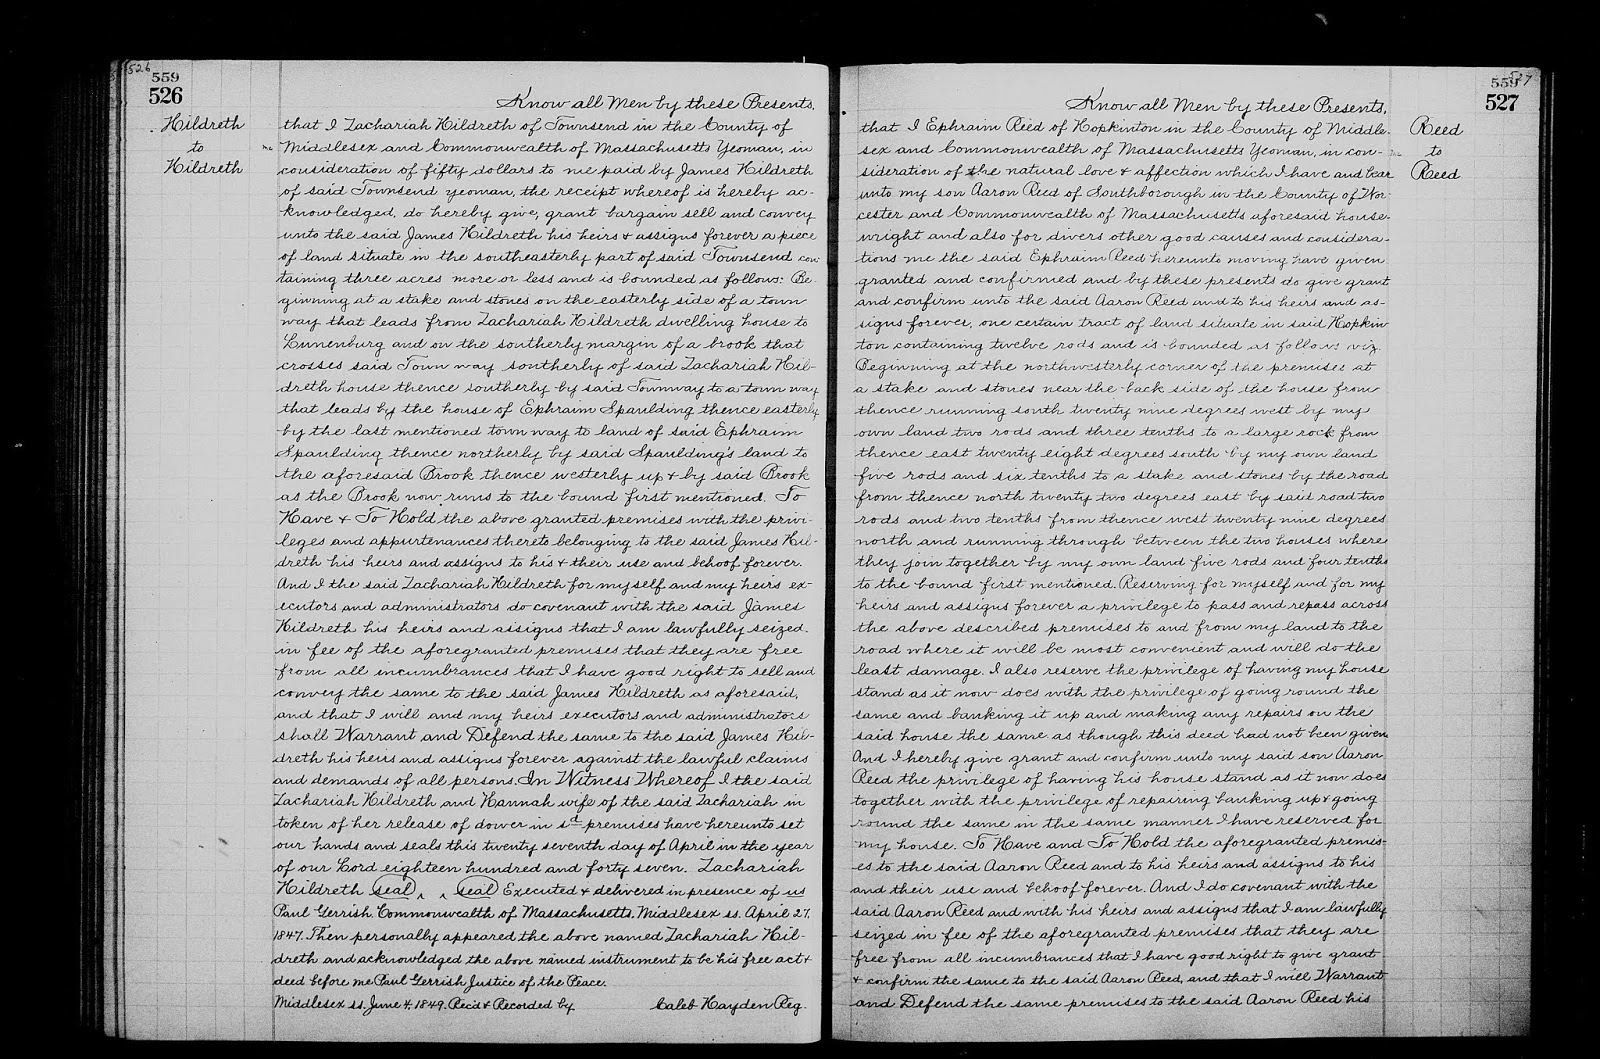 526
559
526
Hildreth
to
Hildreth
Know all Men by these Presents,
that I Zachariah Hildreth of Townsend in the County of
Middlesex and Commonwealth of Massachusetts Yeoman, in
consideration of fifty dollars to me paid by James Hildreth
of said Townsend yeoman, the receipt whereof is hereby ac-
knowledged, do hereby give, grant bargain sell and convey
unto the said James Hildreth his heirs & assigns forever a piece
of land situate in the southeasterly part of said Townsend con
taining three acres more or less and is bounded as follows: Be-
ginning at a stake and stones on the easterly side of a town
way that leads from Zachariah Hildreth dwelling house to
Lunenburg and on the southerly margin of a brook that
crosses said Town way southerly of said Zachariah Hil-
dreth house thence southerly by said Townway to a town way
that leads by the house of Ephraim Spaulding thence easterly
by the last mentioned town way to land of said Ephraim
Spaulding thence northerly by said Spaulding's land to
the aforesaid Brook thence westerly up & by said Brook
as the Brook now runs to the bound first mentioned. To
Have & To Hold the above granted premises with the privi-
leges and appurtenances thereto belonging to the said James Hil-
dreth his heirs and assigns to his & their use and behoof forever.
And I the said Zachariah Hildreth for myself and my heirs ex-
ecutors and administrators do covenant with the said James
Hildreth his heirs and assigns that I am lawfully seized
in fee of the aforegranted premises that they are free
from all incumbrances that I have good right to sell and
convey the same to the said James Hildreth as aforesaid,
and that I will and my heirs executors and administrators
shall Warrant and Defend the same to the said James Hil-
dreth his heirs and assigns forever against the lawful claims
and demands of all persons. In Witness Whereof I the said
Zachariah Hildreth and Hannah wife of the said Zachariah in
token of her release of dower in sd premises have hereunto set
our hands and seals this twenty seventh day of April in the year
of our Lord eighteen hundred and forty seven. Zachariah
Hildreth seal, seal Executed & delivered in presence of us
Paul Gerrish. Commonwealth of Massachusetts, Middlesex ss. April 27,
1847. Then personally appeared the above named Zachariah Hil-
dreth and acknowledged the above named instrument to be his free act &
deed before me Paul Gerrish Justice of the Peace.
Middlesex ss. June 4, 1849. Rec'd & Recorded by Caleb Hayden Reg.
559
527
Reed
to
Reed
Know all Men by these Presents,
that I Ephraim Reed of Hopkinton in the County of Middle-
sex and Commonwealth of Massachusetts Yeoman, in con-
sideration of the natural love & affection which I have and bear
unto my son Aaron Reed of Southborough in the County of Wor
cester and Commonwealth of Massachusetts aforesaid house-
wright and also for divers other good causes and considera-
tions me the said Ephraim Reed hereunto moving have given
granted and confirmed and by these presents do give grant
and confirm unto the said Aaron Reed and to his heirs and as-
signs forever, one certain tract of land situate in said Hopkin
ton containing twelve rods and is bounded as follows viz.
Beginning at the northwesterly corner of the premises at
a stake and stones near the back side of the house from
thence running south twenty nine degrees west by my
own land two rods and three tenths to a large rock from
thence east twenty eight degrees south by my own land
five rods and six tenths to a stake and stones by the road
from thence north twenty two degrees east by said road two
rods and two tenths from thence west twenty nine degrees
north and running through between the two houses where
they join together by my own land five rods and four tenths
to the bound first mentioned. Reserving for myself and for my
heirs and assigns forever a privilege to pass and repass across
the above described premises to and from my land to the
road where it will be most convenient and will do the
least damage. I also reserve the privilege of having my house
stand as it now does with the privilege of going round the
same and banking it up and making any repairs on the
said house the same as though this deed had not been given
And I hereby give grant and confirm unto my said son Aaron
Reed the privilege of having his house stand as it now does
together with the privilege of repairing banking up & going
round the same in the same manner I have reserved for
my house. To Have and To Hold the aforegranted premis-
es to the said Aaron Reed and to his heirs and assigns to his
and their use and behoof forever. And I do covenant with the
said Aaron Reed and with his heirs and assigns that I am lawfully
seized in fee of the aforegranted premises that they are
free from all incumbrances that I have good right to give grant
& confirm the same to the said Aaron Reed, and that I will Warrant
and Defend the same premises to the said Aaron Reed his